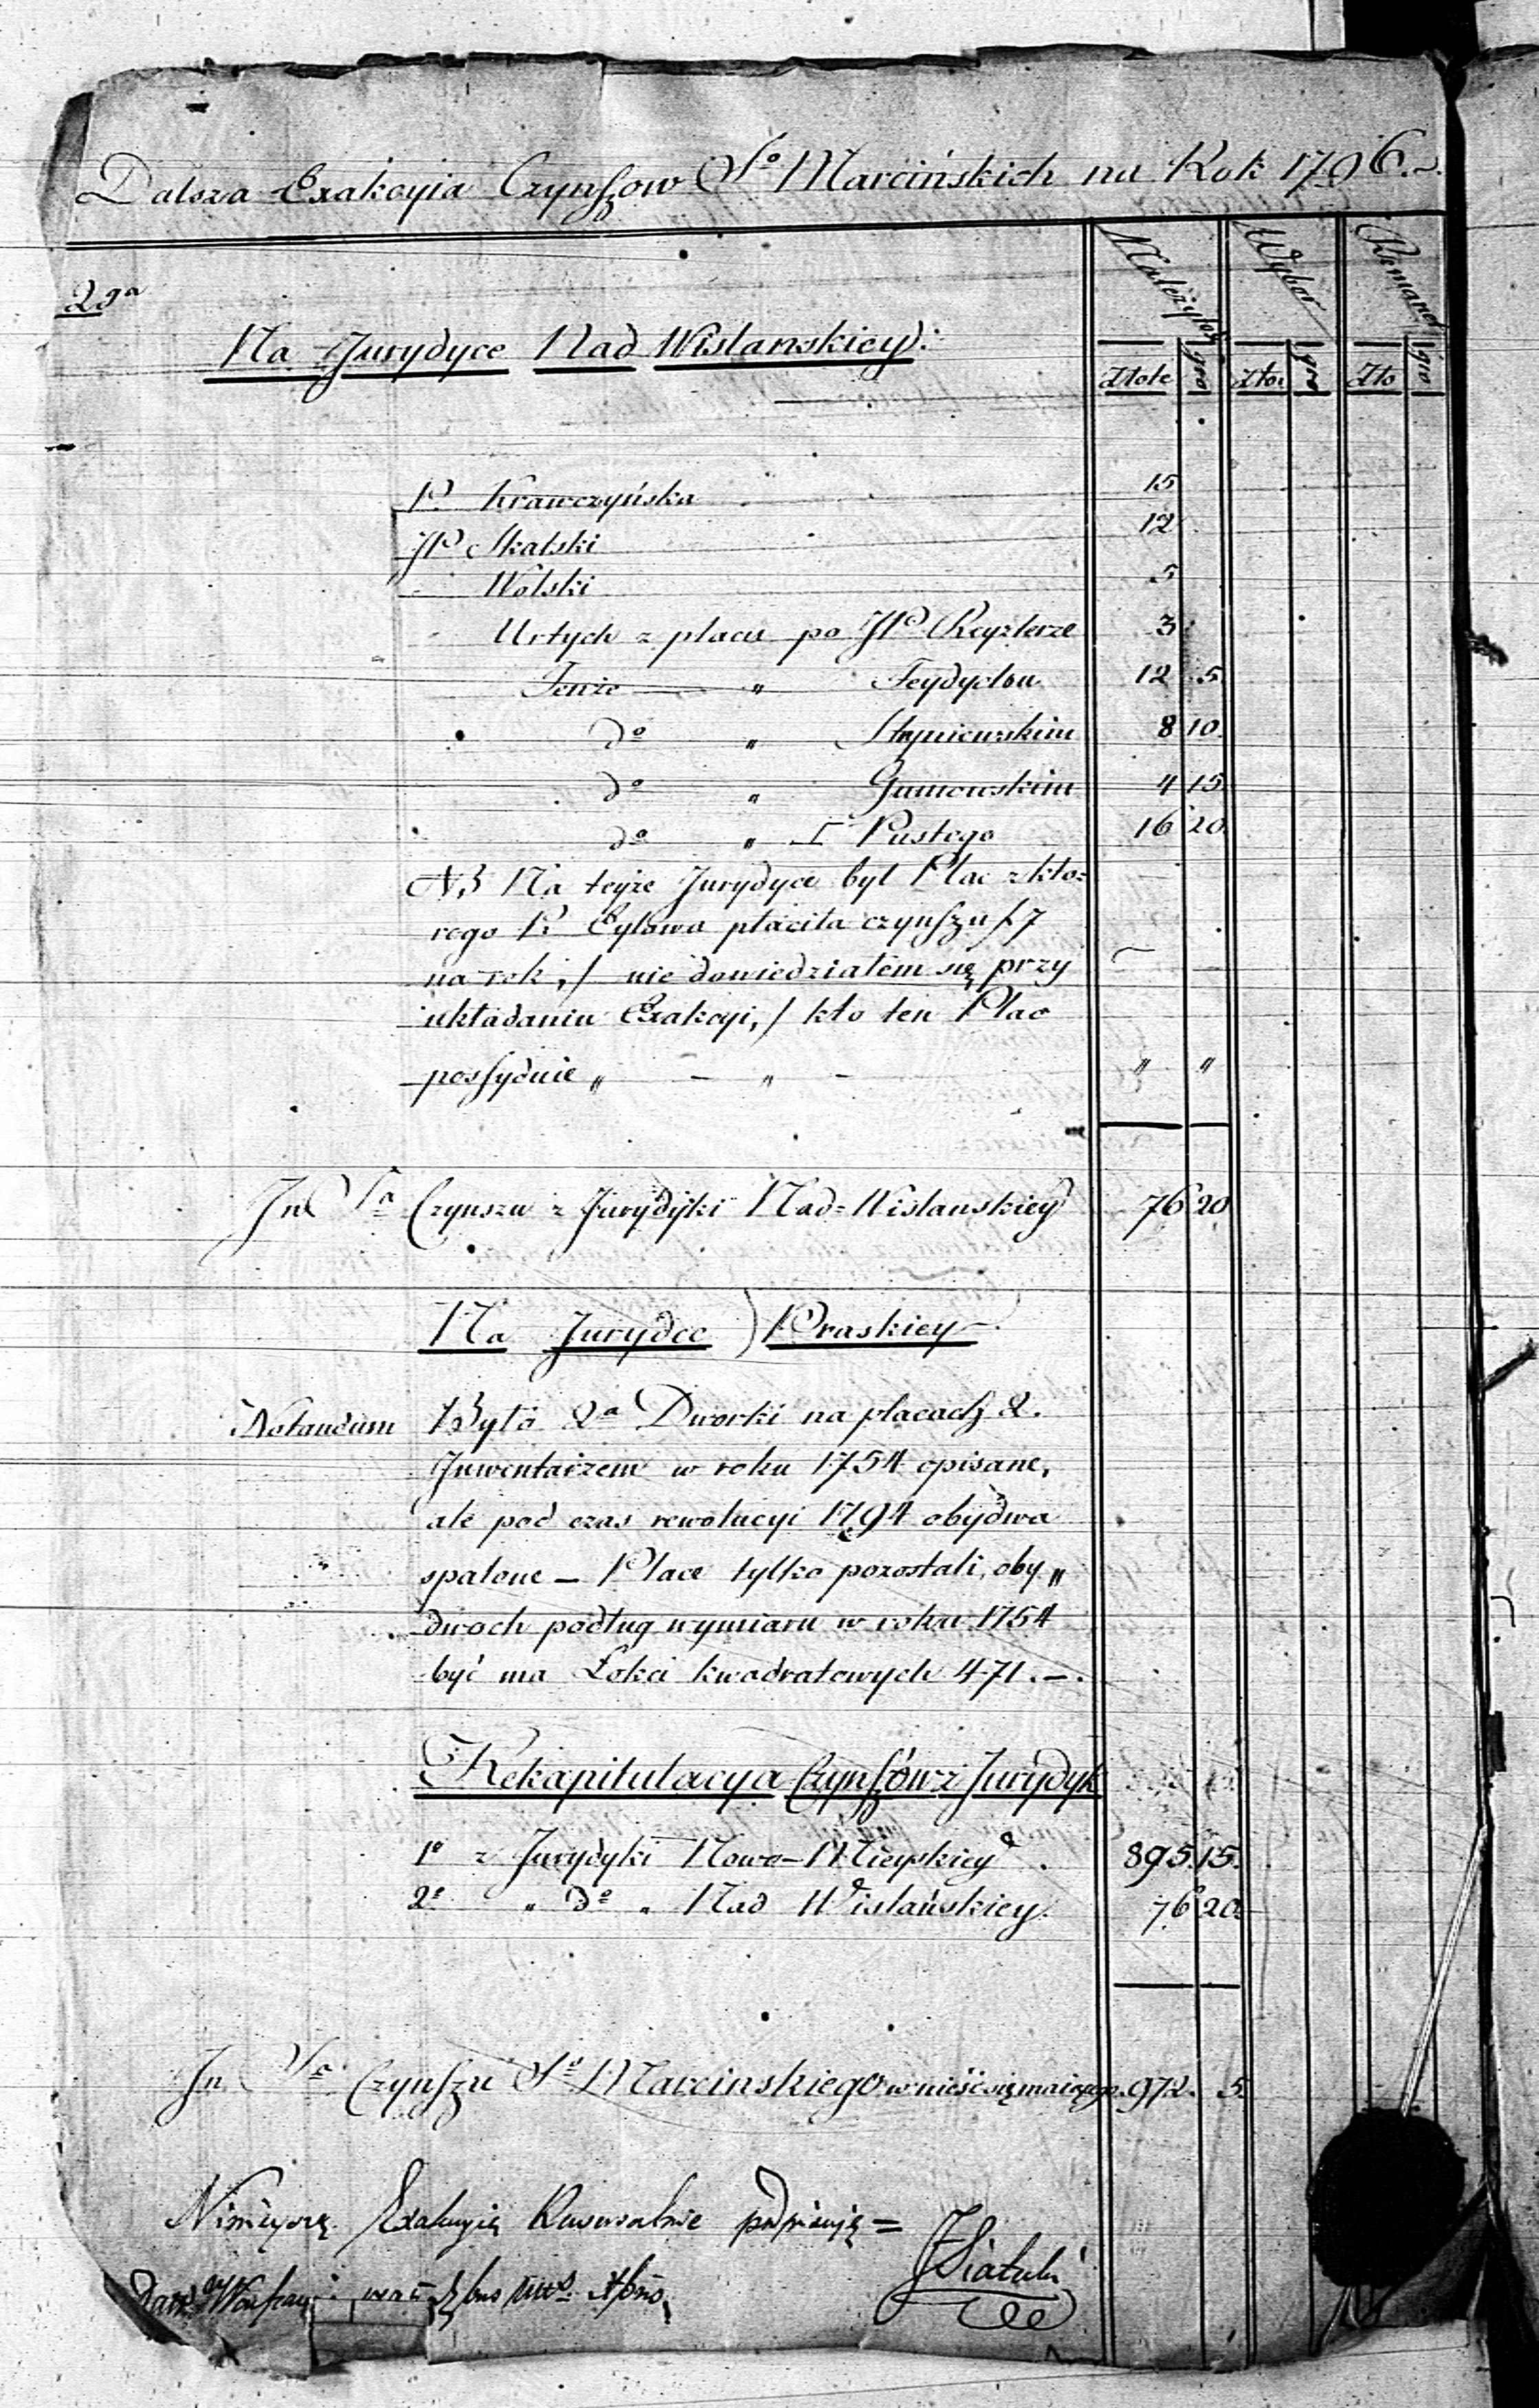 Dalsza Exakcyia Czynszow So Marcińskich na Rok 1796.
Należytość Wybor Remanet
2da
Na Jurydyce Nad Wislanskiey:
Złote gro Złot gro Zło gro
P. Krawczyńska 15
JP Skalski 12
Wolski 5
Urtych z placu po JP Reyzlerze 3
Tenże „ 12 5
do „ 8 10
do „ Gumowskim 4 15
do „ Pustego 16 20
NB Na teyże Jurydyce był Plac z kto=
rego P. Cylowa płaciła czynszu f. 7
na rok, / nie dowiedziałem się przy
układaniu Exakcyi, / kto ten Plac
possyduie „ - „ - „ „
In Sa Czynszu z Jurydyki Nad=Wislanskiey 76 20
Na Jurydce Praskiey
Notandum Było 2a Dworki na placach 2.
Inwentarzem w roku 1754 opisane,
ale pod czas rewolucyi 1794 obydwa
spalone – Place tylko pozostali, oby„
dwoch podług wymiaru w roku 1754
być ma Łokci kwadratowych 471.–.
Rekapitulacya Czynszów z Jurydyk
1o z Jurydyki Nowo–Mieyskiey 895. 15.
2o „ do „ Nad Wislańskiey. 76 20.
In Sa Czynszu So Marcinskiego wnieść się maiącego. 972. 5.
Ninieyszą Exakcyią podpisuię =